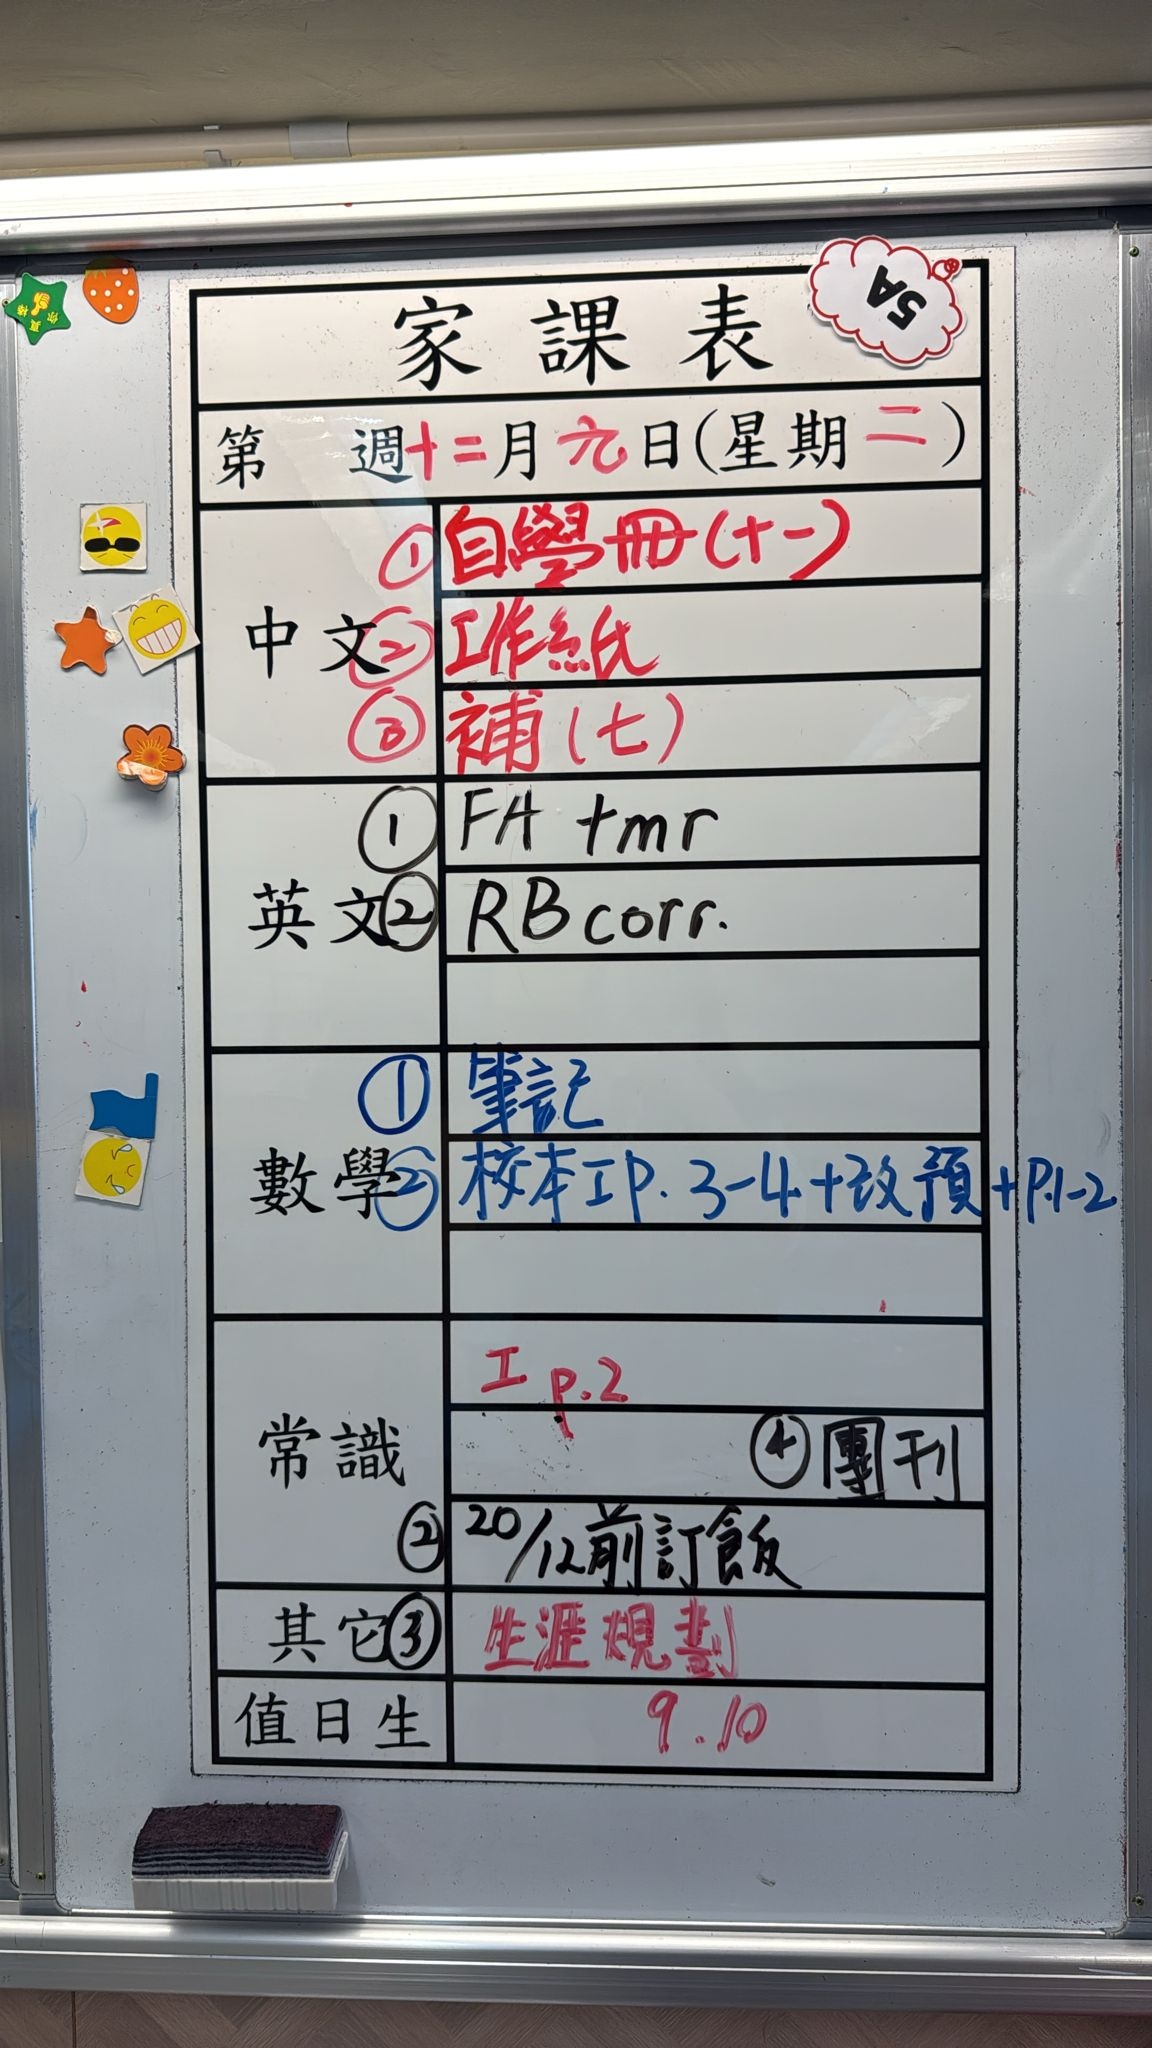 家課表
5A
第 週十二月九日(星期二)
中文
①自學冊(十一)
②工作紙
③補(七)
英文
①FA tmr
②RB corr.
數學
①筆記
②校本工P.3-4+改預+P.1-2
常識
工 p.2
④團刊
②20/12前訂飯
其它
③生涯規劃
值日生
9.10